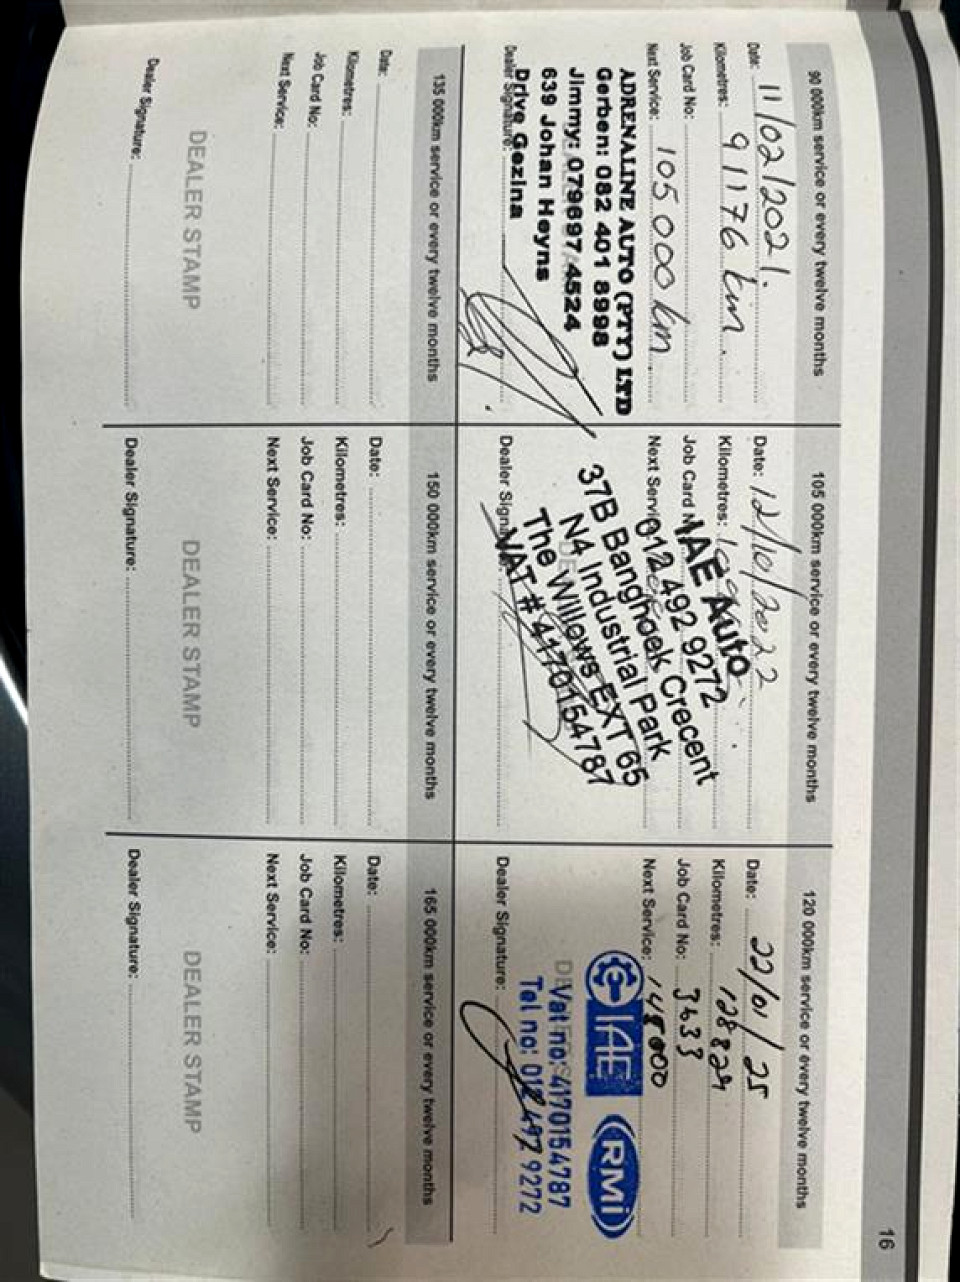 16
90 000km service or every twelve months
Date: 11/02/2021.
Kilometres: 91176 km.
Job Card No:
Next Service: 105 000 km
ADRENALINE AUTO (PTY) LTD
Gerben: 082 401 8998
Jimmy: 079697 4524
639 Johan Heyns
Drive Gezina
Dealer Signature:
105 000km service or every twelve months
Date: 12/10/2022
Kilometres:
Job Card
Next Service
IAE Auto
012 492 9272
37B Banghoek Crecent
N4 Industrial Park
The Willows EXT 65
VAT # 4170154787
Dealer
120 000km service or every twelve months
Date: 22/01/25
Kilometres: 128829
Job Card No: 3633
Next Service: 148000
IAE RMi
Vat no: 4170154787
Tel no: 012 492 9272
Dealer Signature:
135 000km service or every twelve months
Date:
Kilometres:
Job Card No:
Next Service:
DEALER STAMP
Dealer Signature:
150 000km service or every twelve months
Date:
Kilometres:
Job Card No:
Next Service:
DEALER STAMP
Dealer Signature:
165 000km service or every twelve months
Date:
Kilometres:
Job Card No:
Next Service:
DEALER STAMP
Dealer Signature: